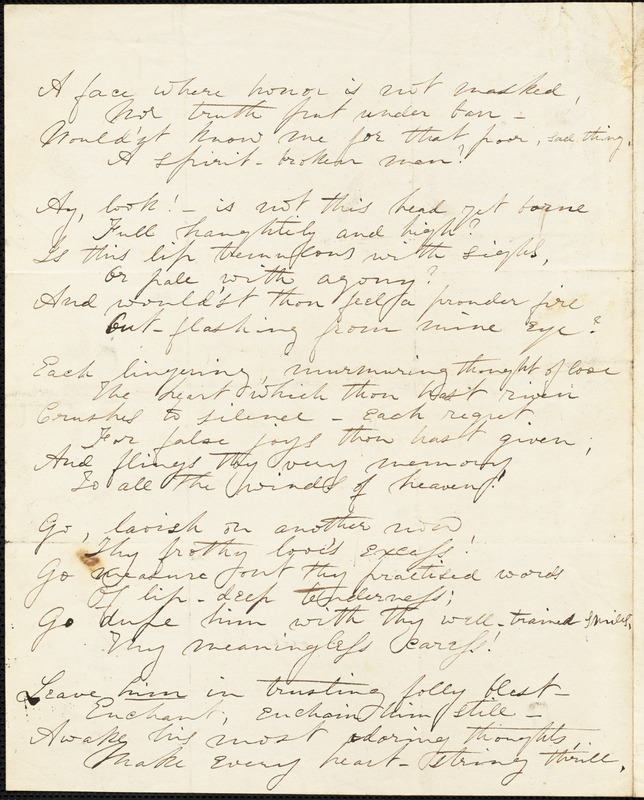 A face where honor is not masked,
Nor truth put under ban –
Would'st know me for that poor, sad thing,
A spirit-broken man?
Ay, look! – is not this head yet borne
Full haughtily and high?
Is this lip tremulous with sighs,
Or pale with agony?
And would'st thou feel a prouder fire
Out-flashing from mine eye?
Each lingering, murmuring thought of love
The heart which thou hast riven
Crushes to silence – each regret
For false joys thou hast given,
And flings thy very memory
To all the winds of heaven!
Go, lavish on another now
Thy frothy love's excess!
Go measure out thy practised words
Of lip-deep tenderness;
Go dupe him with thy well-trained smiles,
Thy meaningless caress!
Leave him in trusting folly blest –
Enchant, enchain him still –
Awake his most adoring thoughts,
Make every heart-string thrill,